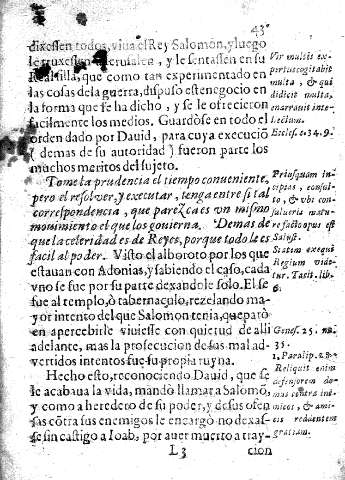 43
dixessen todos, viua el Rey Salomon, y luego
le truxessen a Ierusalen, y le sentassen en su
Real silla, que como tan experimentado en
las cosas de la guerra, dispuso este negocio en
la forma que se ha dicho, y se le ofrecieron
facilmente los medios. Guardòse en todo el
orden dado por Dauid, para cuya execuciõ
( demas de su autoridad ) fueron parte los
muchos meritos del sujeto.
Tome la prudencia el tiempo conueniente,
pero el resoluer, y executar, tenga entre si tal
correspondencia, que parezca es vn mismo
mouimiento el que los gouierna. Demas de
que la celeridad es de Reyes, porque todo le es
facil al poder. Visto el alboroto por los que
estauan con Adonias, y sabiendo el caso, cada
vno se fue por su parte dexandole solo. El se
fue al templo, ò tabernaculo, rezelando ma-
yor intento del que Salomon tenia, que parò
en apercebirle viuiesse con quietud de alli
adelante, mas la prosecucion de sus mal ad-
vertidos intentos fue su propia ruyna.
Hecho esto, reconociendo Dauid, que se
le acabaua la vida, mandò llamar a Salomõ,
y como a heredero de su poder, y de sus ofen
sas cõtra sus enemigos le encargò no dexas-
se sin castigo a Ioab, por auer muerto a tray-
L3 cion
Vir multis ex-
pertus cogitabit
multa, & qui
didicit multa,
enarrauit inte-
llectum.
Eccles. c. 34. 9.
Priusquam in-
cipias, consul-
to, & vbi con-
sulueris matu-
re facto opus est
Salust.
Statim exequi
Regium vide-
tur. Tacit. lib.
6.
Genes. 25. nu.
35.
1. Paralip. 28.
Reliquit enim
defensorem do-
mus contra ini-
micos, & ami-
cis reddentem
gratiam.